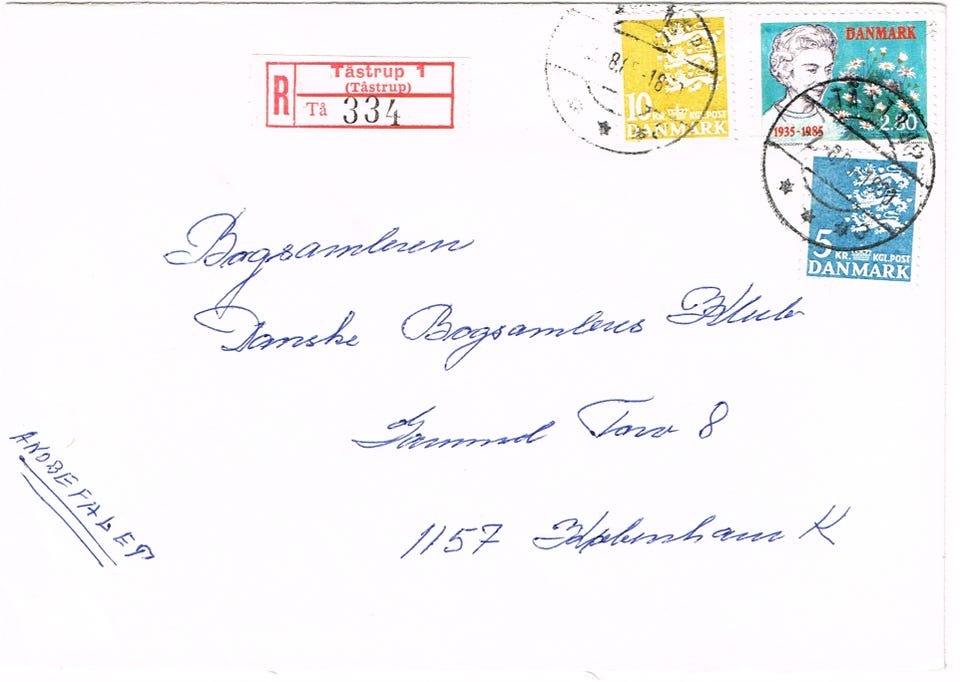 R
Tåstrup 1
(Tåstrup)
Tå 334
10 KR. KGL.POST
DANMARK
DANMARK
1935-1985
2.80
TÅSTRUP
5 KR. KGL.POST
DANMARK
Bogsamleren
Danske Bogsamlers Klub
Gammel Torv 8
1157 København K
ANBEFALET